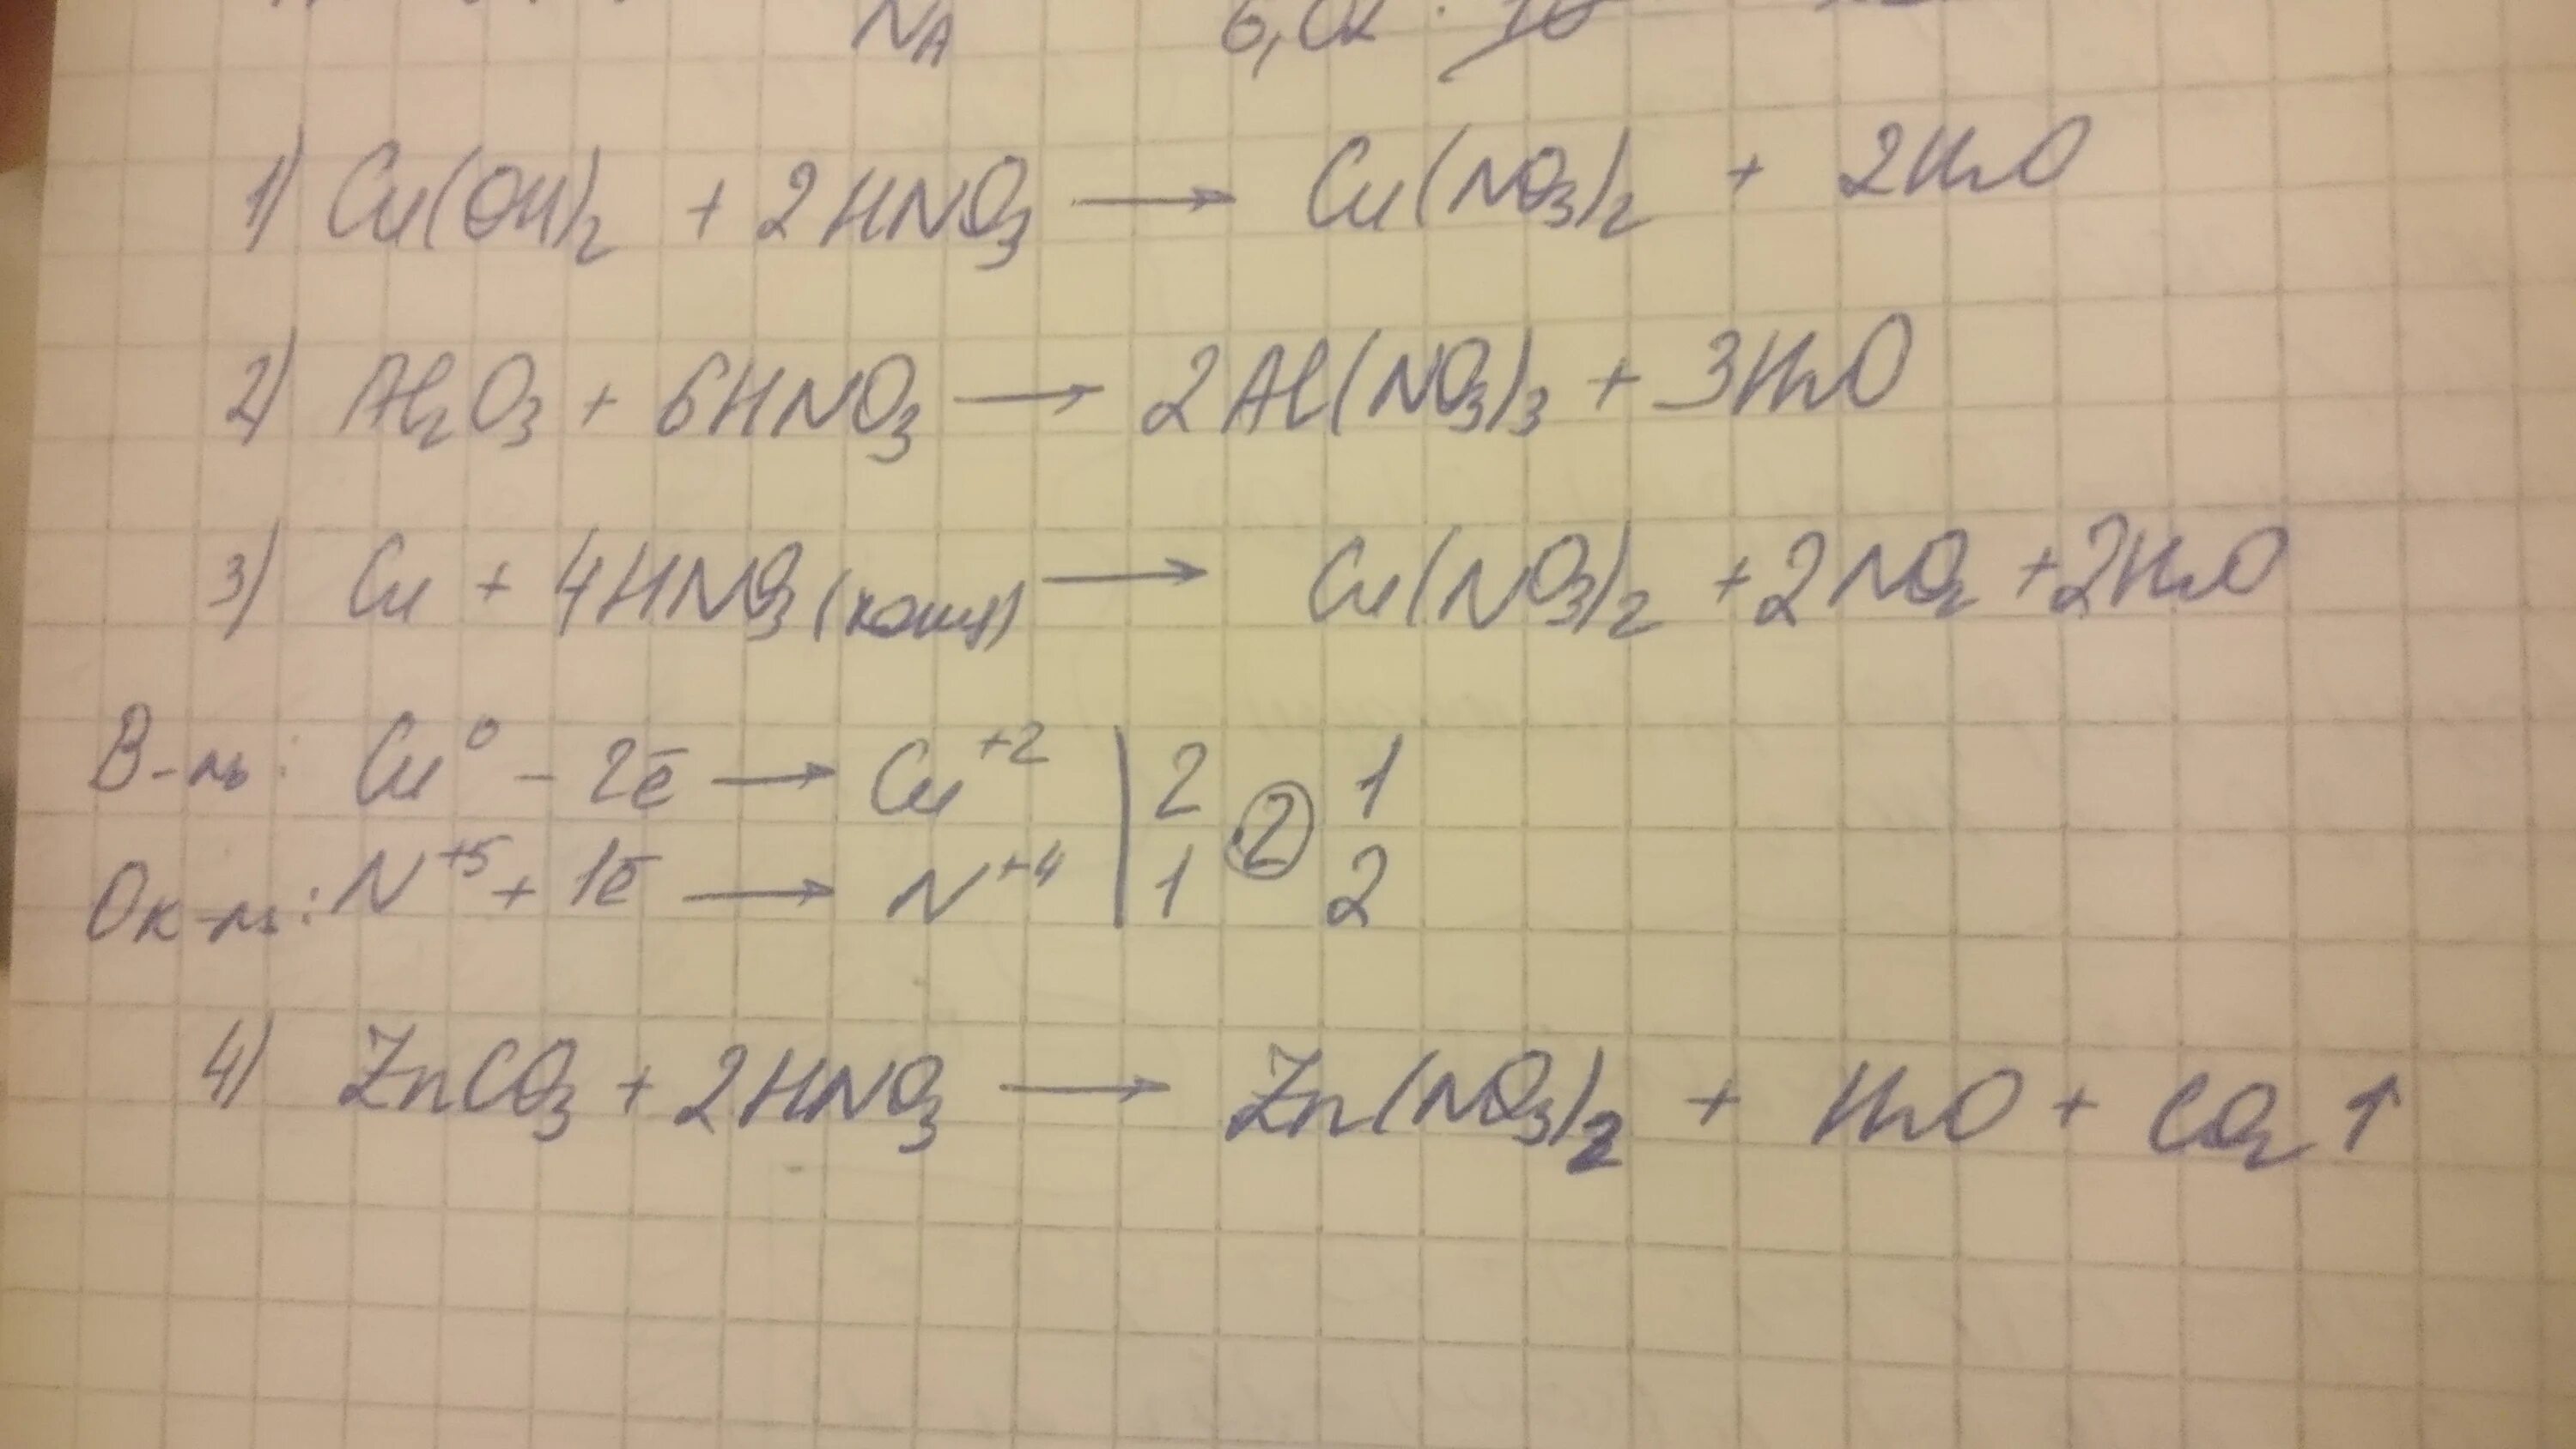 NA 6,02 · 10
1) Cu(OH)2 + 2HNO3 → Cu(NO3)2 + 2H2O
2) Al2O3 + 6HNO3 → 2Al(NO3)3 + 3H2O
3) Cu + 4HNO3 (конц) → Cu(NO3)2 + 2NO2 + 2H2O
В-ль: Cu⁰ - 2ē → Cu⁺² | 2 ② 1
Ок-ль: N⁺⁵ + 1ē → N⁺⁴ | 1 2
4) ZnCO3 + 2HNO3 → Zn(NO3)2 + H2O + CO2 ↑